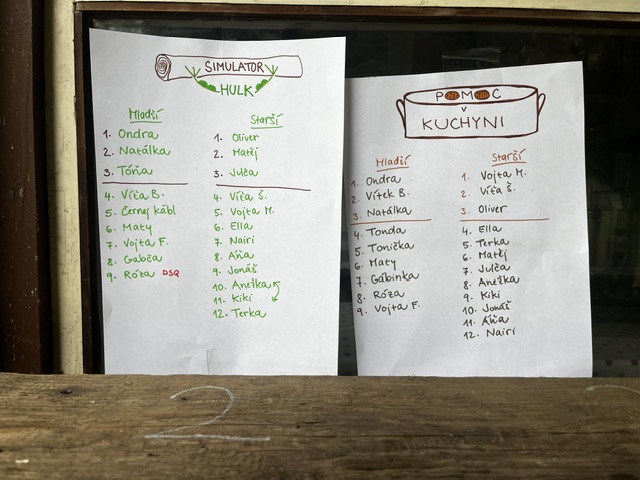 SIMULATOR
HULK
Mladší
1. Ondra
2. Natálka
3. Tóňa
4. Víťa B.
5. Černej kábl
6. Maty
7. Vojta F.
8. Gabča
9. Róza DSQ
Starší
1. Oliver
2. Matěj
3. Julča
4. Víťa Š.
5. Vojta M.
6. Ella
7. Nairi
8. Áňa
9. Jonáš
10. Anežka
11. Kiki
12. Terka
POMOC
V
KUCHYNI
Mladší
1. Ondra
2. Vítek B.
3. Natálka
4. Tonda
5. Tonička
6. Maty
7. Gábinka
8. Róza
9. Vojta F.
Starší
1. Vojta M.
2. Víťa Š.
3. Oliver
4. Ella
5. Terka
6. Matěj
7. Julča
8. Anežka
9. Kiki
10. Jonáš
11. Áňa
12. Nairi
2